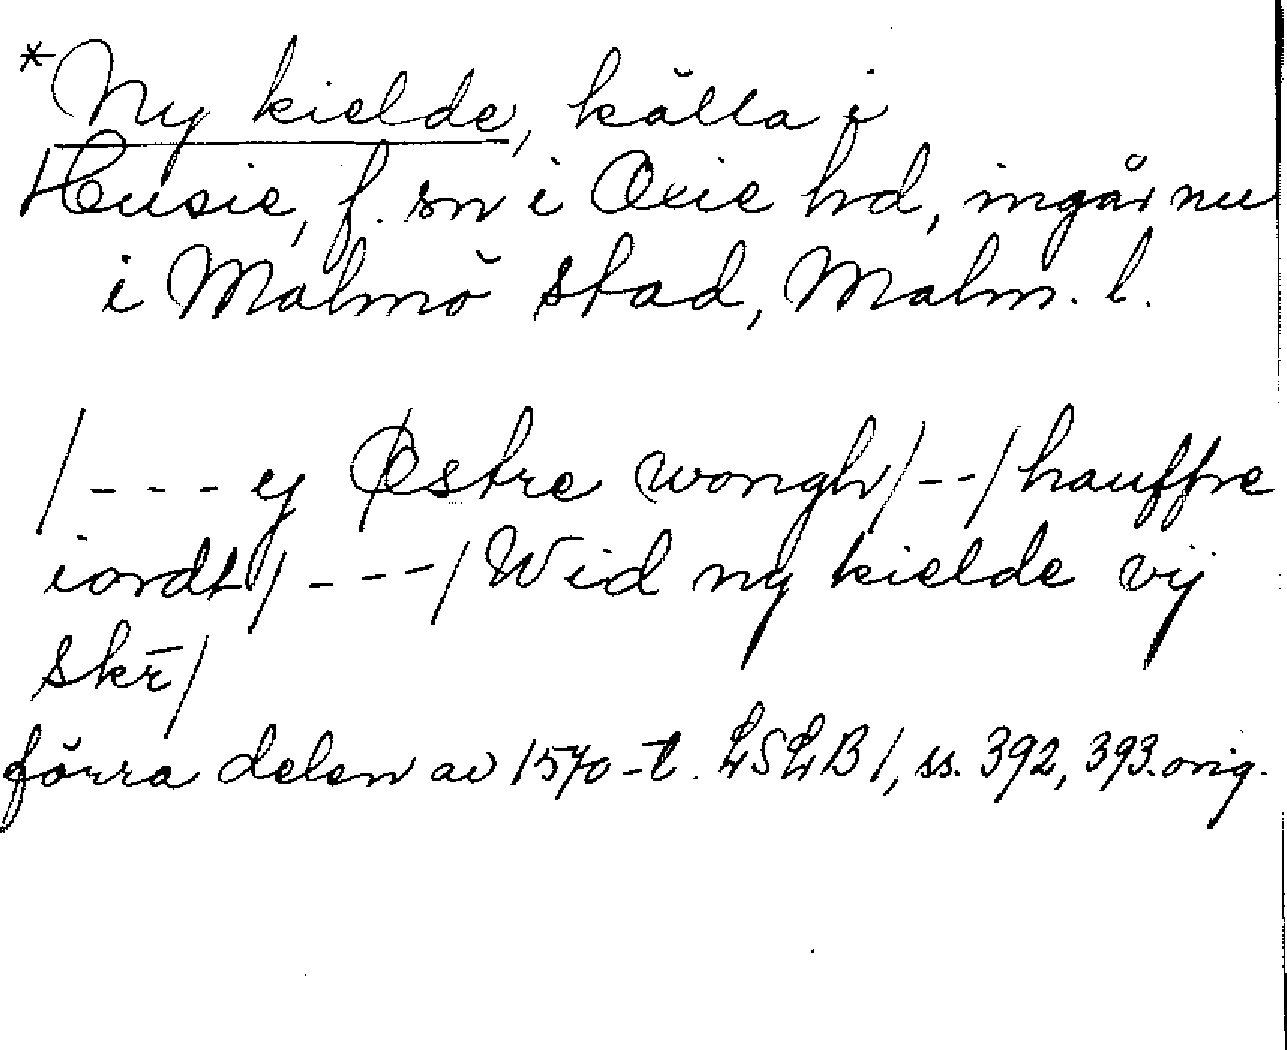 *Ny kielde, källa i
Husie, f. sn i Oxie hd, ingår nu
i Malmö stad, Malm. l.
/--- ej Østre wongh/--/hauffre
iordt/---/Wid ny kielde vij
skr̄/
förra delen av 1570-t. LSLB 1, ss. 392, 393. orig.